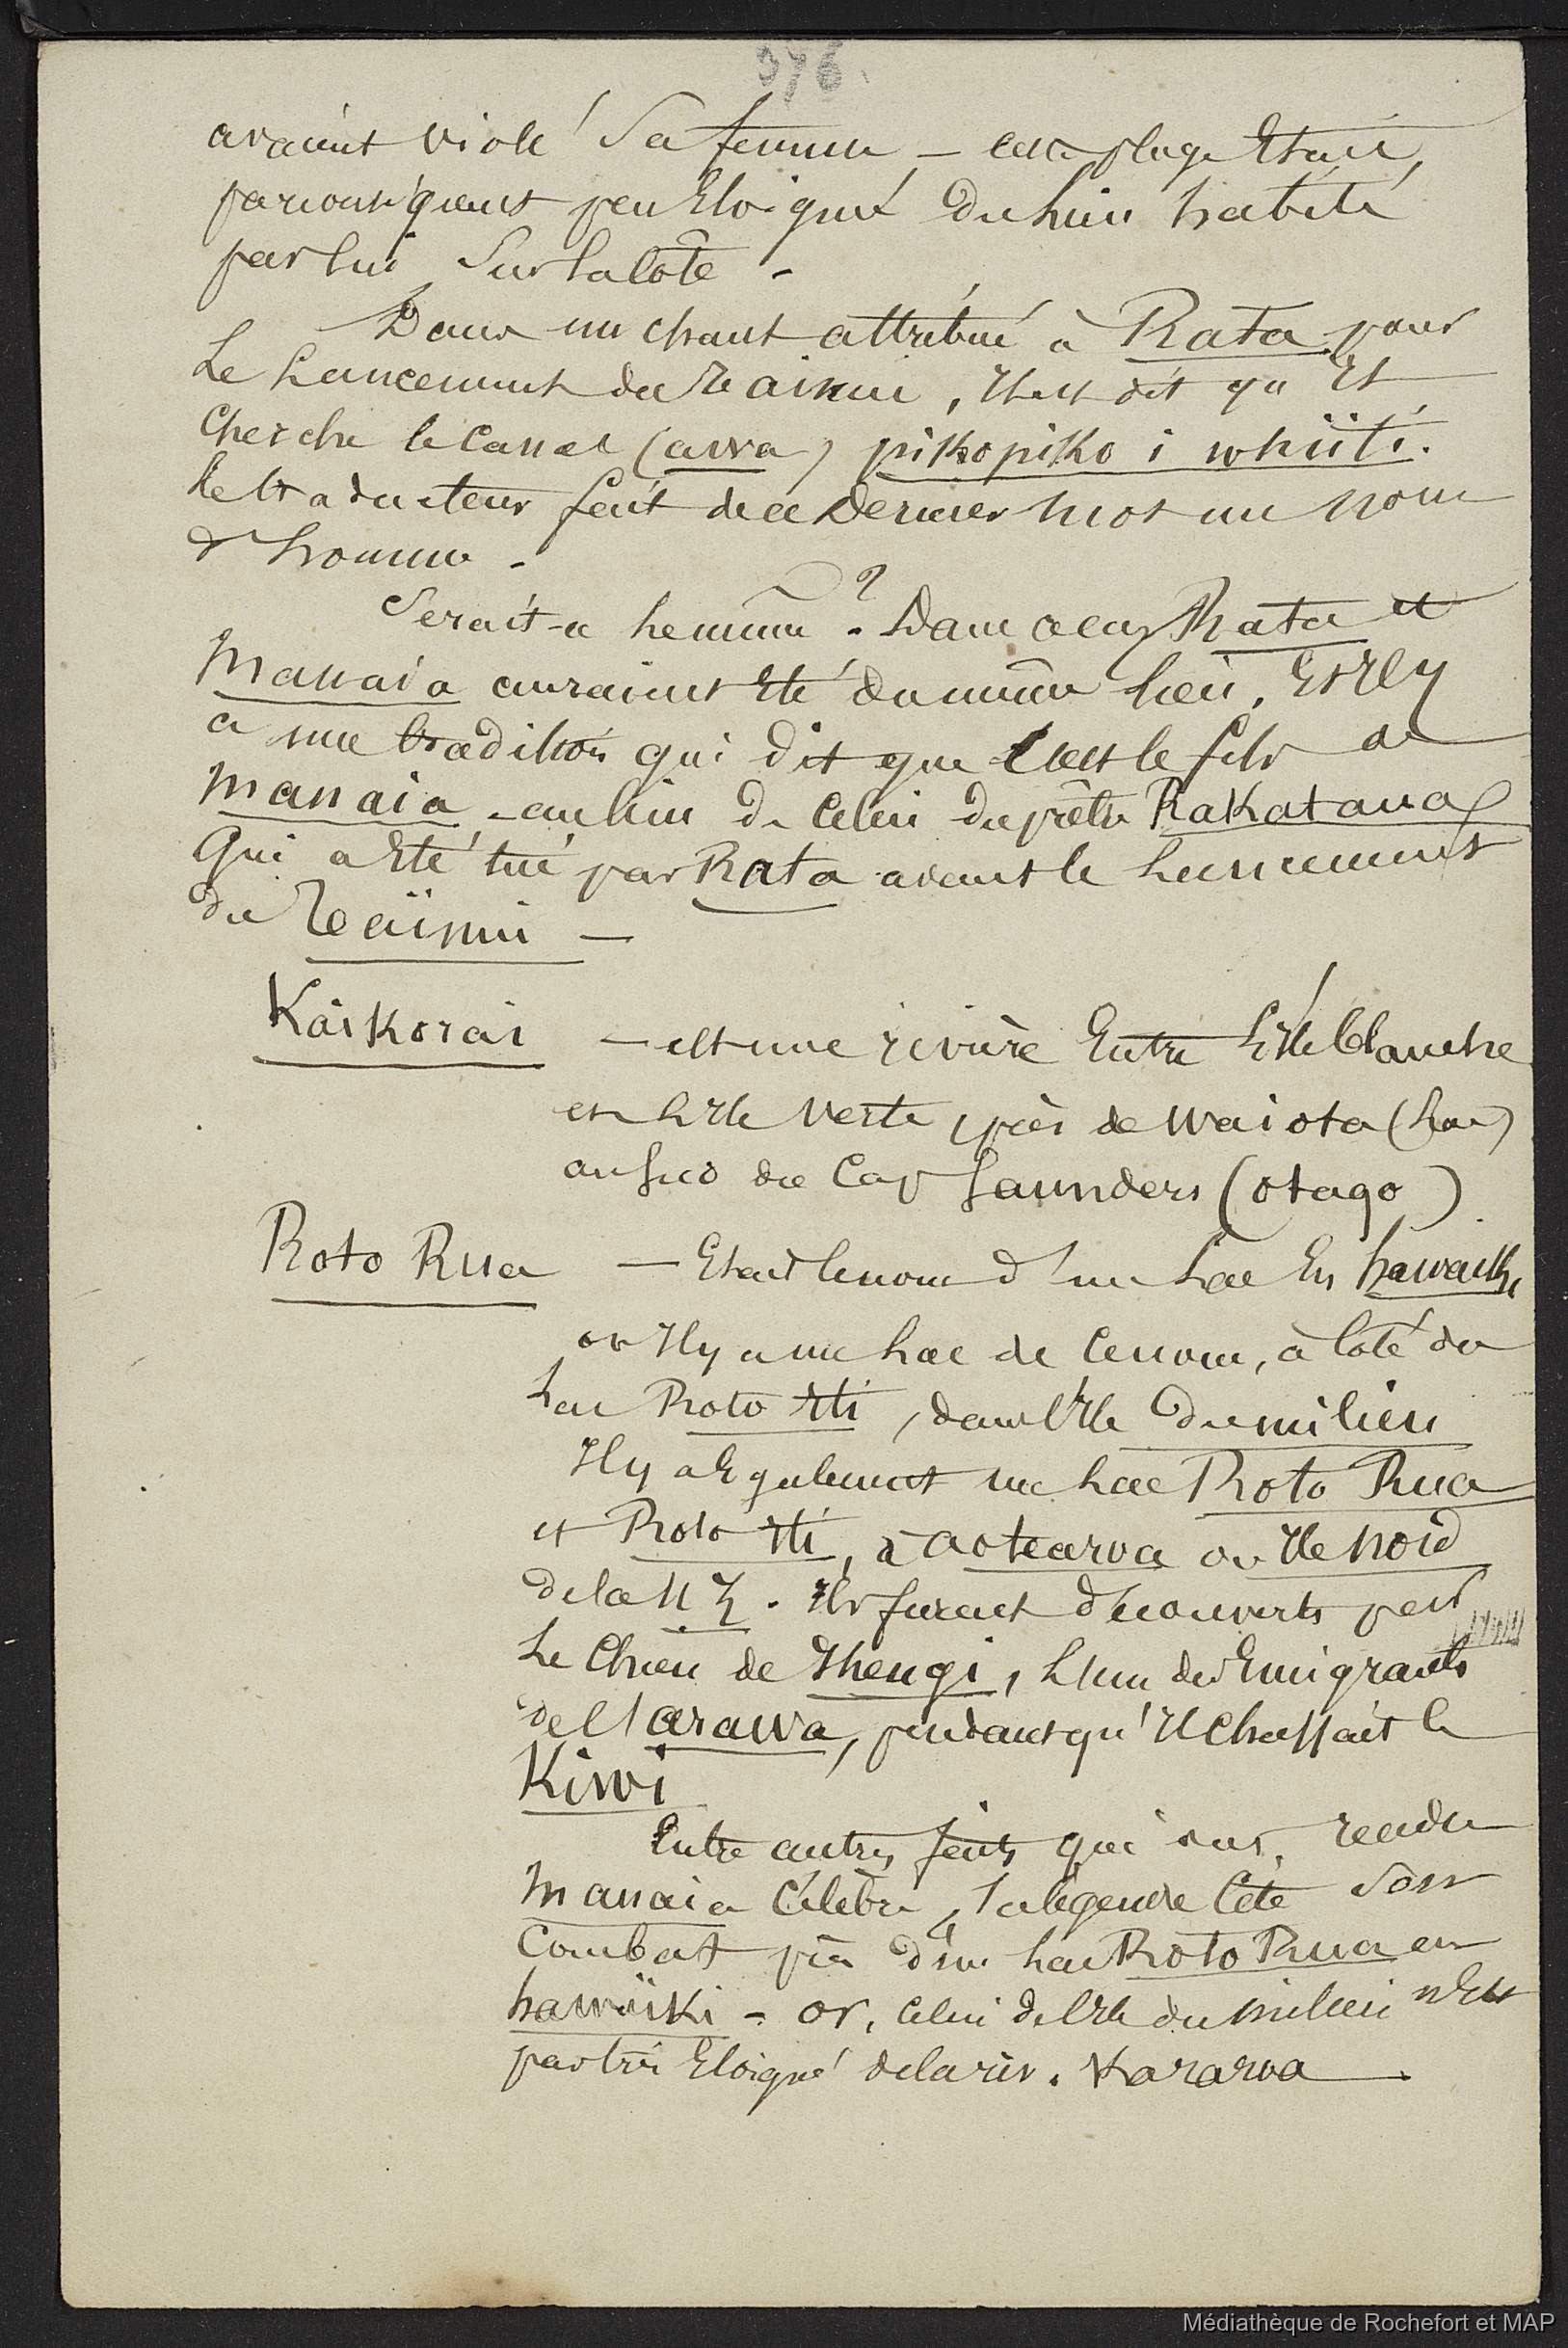 376
avaient violé sa femme — cette plage était
par conséquent peu éloigné du lieu habité
par lui sur la côte -
Dans un chant attribué à Rata pour
le lancement du Tainui, il est dit qu'il
cherche le canal (awa) pikopiko i whiiti.
le traducteur fait de ce dernier mot un nom
d'homme -
Serait-ce le même ? Dans ce cas Rata et
Manaia auraient été du même lieu. Et il y
a une tradition qui dit que c'est le fils de
Manaia - au lieu de celui du prêtre Rakataua
qui a été tué par Rata avant le lancement
du Taïnui —
Kaikorai — est une rivière entre l'Ile blanche
et l'Ile verte, près de Waiota (lac)
au sud du Cap Saunders (Otago)
Roto Rua — Etait le nom d'un lac en hawaiki,
or Il y a un lac de ce nom, à côté du
Lac Roto Iti, dans l'Ile du milieu
Il y a également un lac Roto Rua
et Roto Iti, à Aotearoa ou Ile nord
de la N Z. Ils furent découverts par
le chien de Ihengi, l'un des Emigrants
de l'arawa, pendant qu'il chassait le
Kiwi
Entre autres faits qui ont rendu
Manaia célèbre, la légende cite son
combat près d'un lac Roto Rua en
hawaïki - or, celui de l'Ile du milieu n'est
pas très éloigné de la riv. Kararoa —.
Médiathèque de Rochefort et MAP